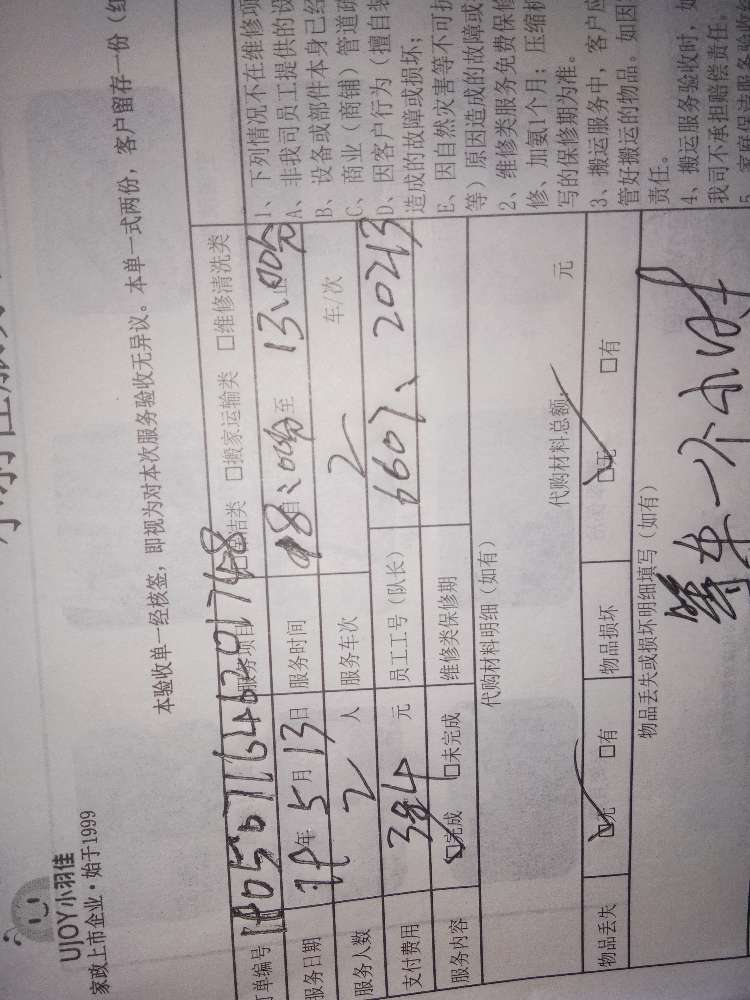 UJOY小羽佳
家政上市企业·始于1999
本验收单一经核签，即视为对本次服务验收无异议。本单一式两份，客户留存一份（红
单编号 服务项目 洁类 □搬家运输类 □维修清洗类
服务日期 年5月13日 服务时间 8:00分至13:00分
服务人数 2人 服务车次 2 车/次
支付费用 384元 员工工号（队长） 6607、20213
服务内容 ☑完成 □未完成 维修类保修期
代购材料明细（如有）
代购材料总额： 元
物品丢失 ☑无 □有 物品损坏 ☑无 □有
物品丢失或损坏明细填写（如有）
等车一个小时
1、下列情况不在维修项
A、非我司员工提供的设
B、设备或部件本身已经
C、商业（商铺）管道疏
D、因客户行为（擅自装
造成的故障或损坏；
E、因自然灾害等不可抗
等）原因造成的故障或
2、维修类服务免费保修
修、加氨1个月；压缩机
写的保修期为准。
3、搬运服务中，客户应
管好搬运的物品。如因
责任。
4、搬运服务验收时，如
我司不承担赔偿责任。